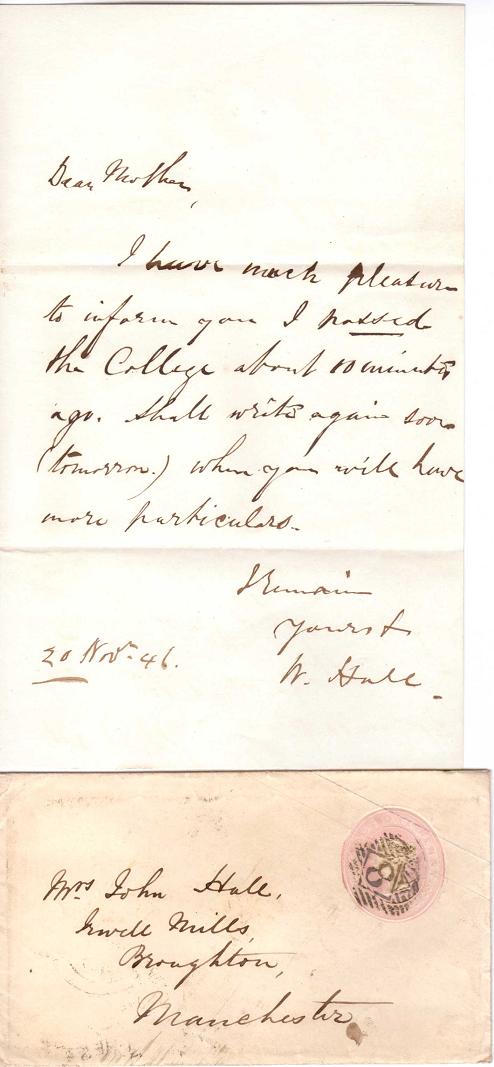 Dear Mother,
I have much pleasure
to inform you I passed
the College about 10 minutes
ago. Shall write again soon
(tomorrow.) when you will have
more particulars.
I Remain
Yours &
W. Hall.
20 Novr. 46.
Mrs John Hall,
Irwell Mills,
Broughton,
Manchester